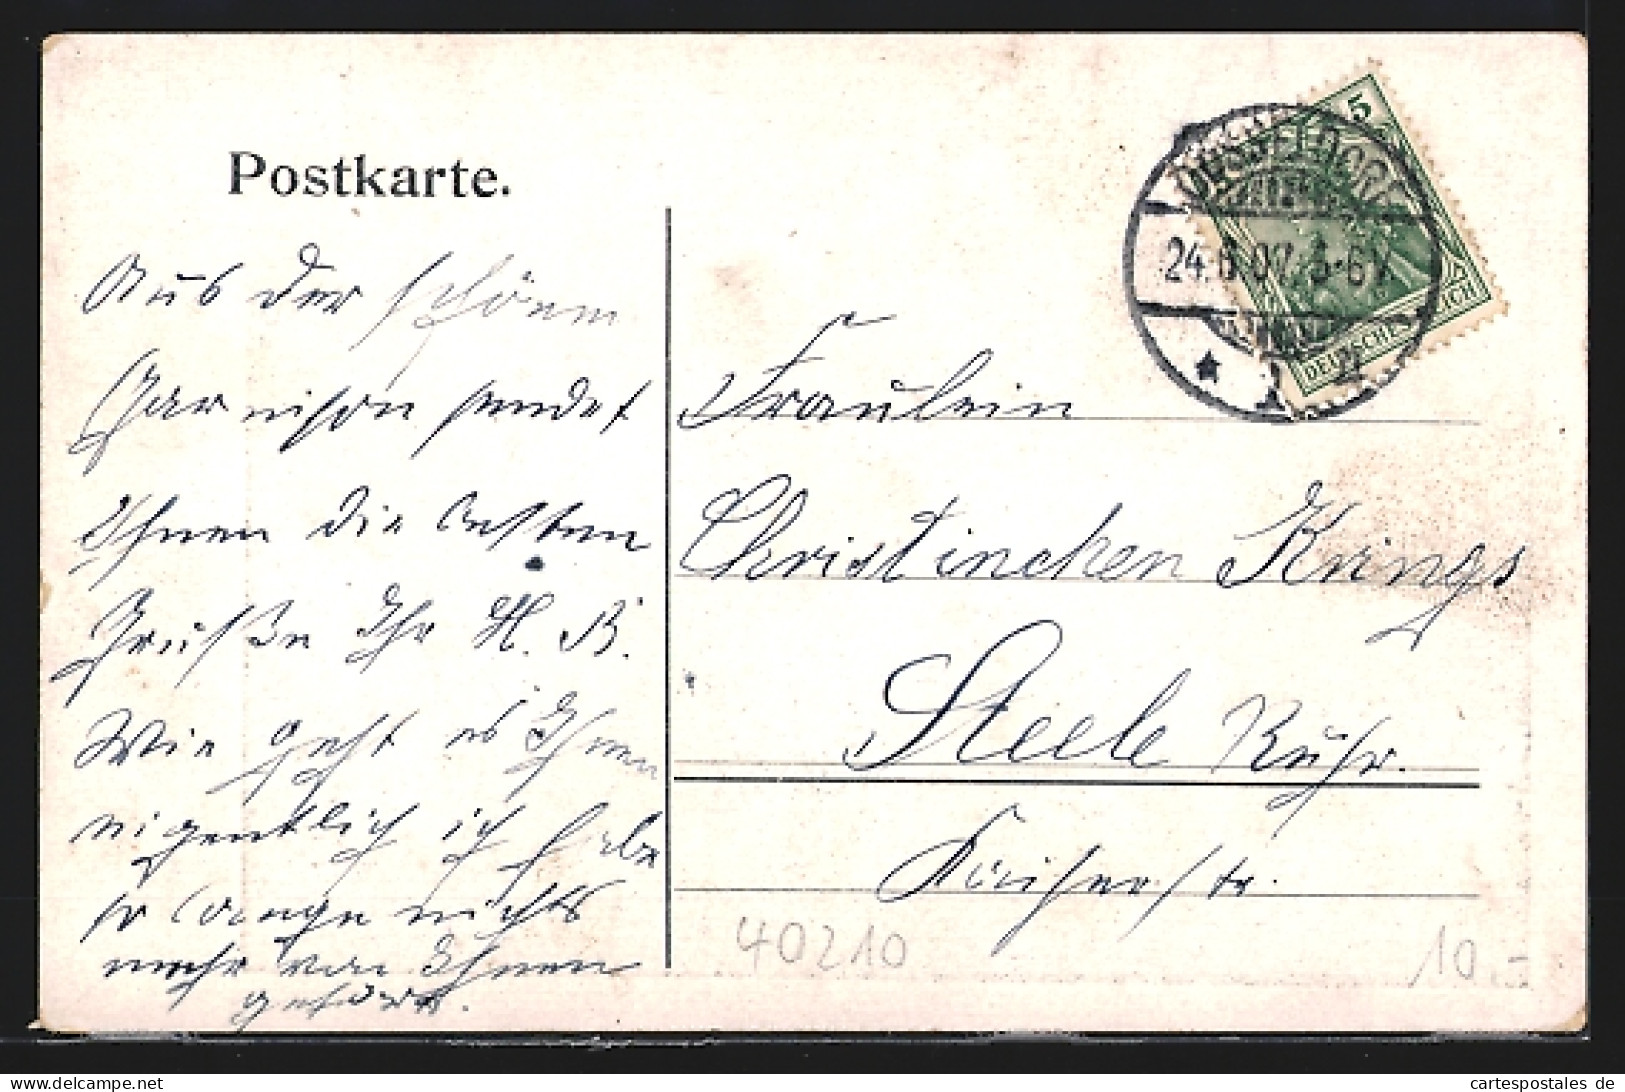 Postkarte.
Aus der schönen
Garnison sendet
Ihnen die besten
Grüße Ihr H. B.
Wie geht es Ihnen
eigentlich ich habe
so lange nichts
mehr von Ihnen
gehört.
5
DÜSSELDORF
24.6.07. 5-6V.
* 1
DEUTSCHES REICH
Fräulein
Christinchen Krings
Steele Ruhr.
Kaiserstr.
40210
10.-
cartespostales de